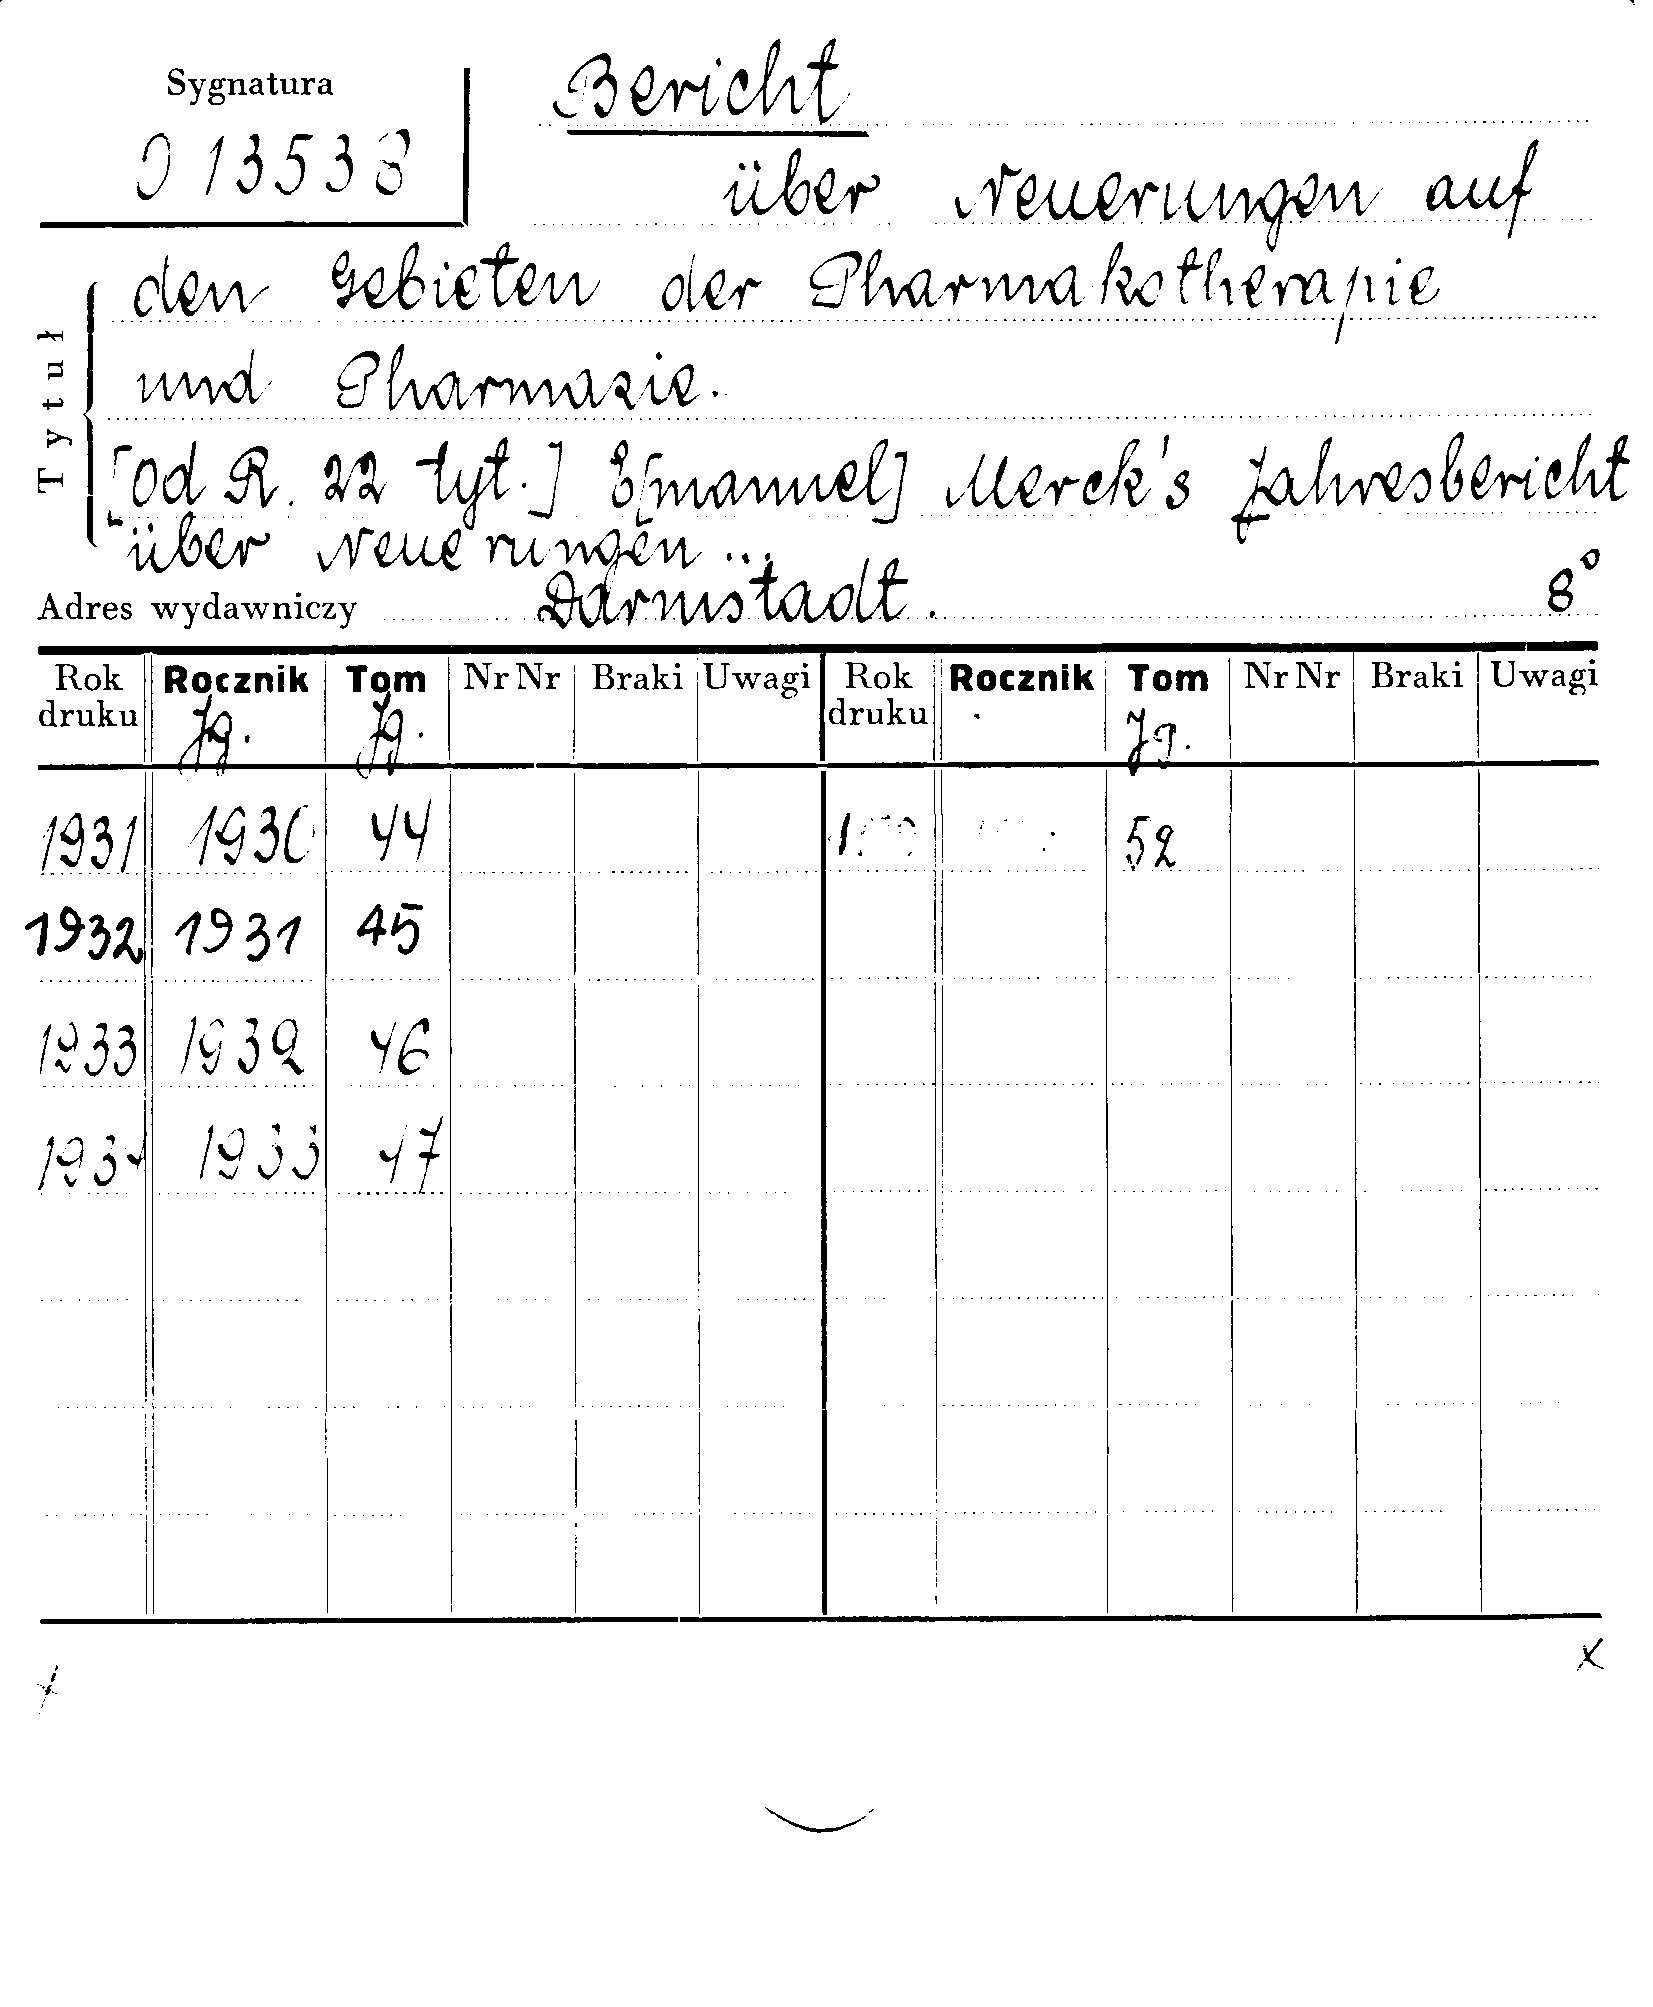 Sygnatura
13538
Bericht
über Neuerungen auf
den Gebieten der Pharmakotherapie
und Pharmazie.
[od R. 22 tyt.] E[manuel] Merck's Jahresbericht
über Neuerungen ...
Tytuł
Adres wydawniczy Darmstadt. 8°
Rok druku Rocznik Tom Nr Nr Braki Uwagi Rok druku Rocznik Tom Nr Nr Braki Uwagi
Jg. Jg. Jg.
1931 1930 44 52
1932 1931 45
1933 1932 46
1934 1933 47